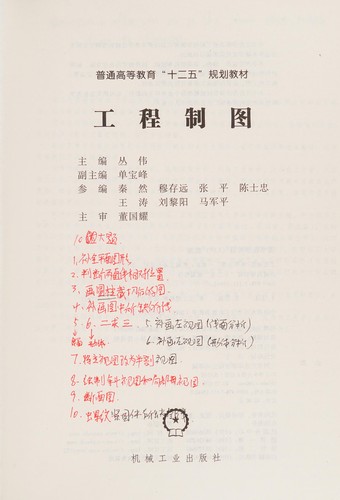 普通高等教育“十二五”规划教材
工程制图
主编 丛伟
副主编 单宝峰
参编 秦然 穆存远 张平 陈士忠
王涛 刘黎阳 马军平
主审 董国耀
10 大题
1、补全平面图形
2、判断两直线相对位置
3、画圆柱截切后的图
4、补画图中所缺的线
5、6、二求三 5、补画左视图
6、补画左视图
7、将主视图改为半剖视图
8、绘制 斜视图和局部视图
9、断面图
10、
机械工业出版社